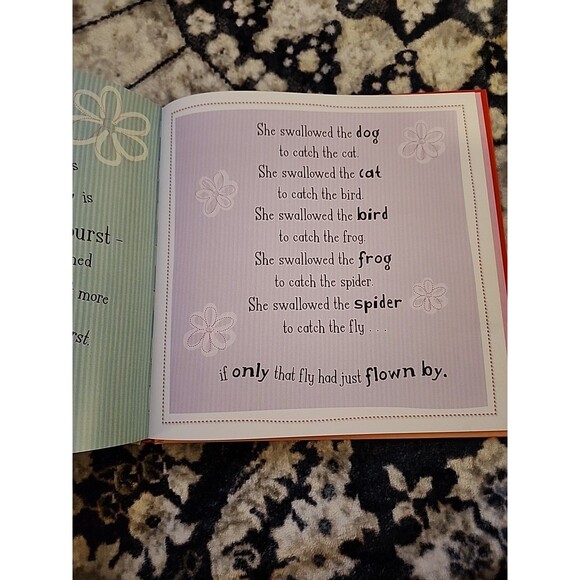 s
is
urst –
ned
more
rst.
She swallowed the dog
to catch the cat.
She swallowed the cat
to catch the bird.
She swallowed the bird
to catch the frog.
She swallowed the frog
to catch the spider.
She swallowed the spider
to catch the fly . . .
if only that fly had just flown by.